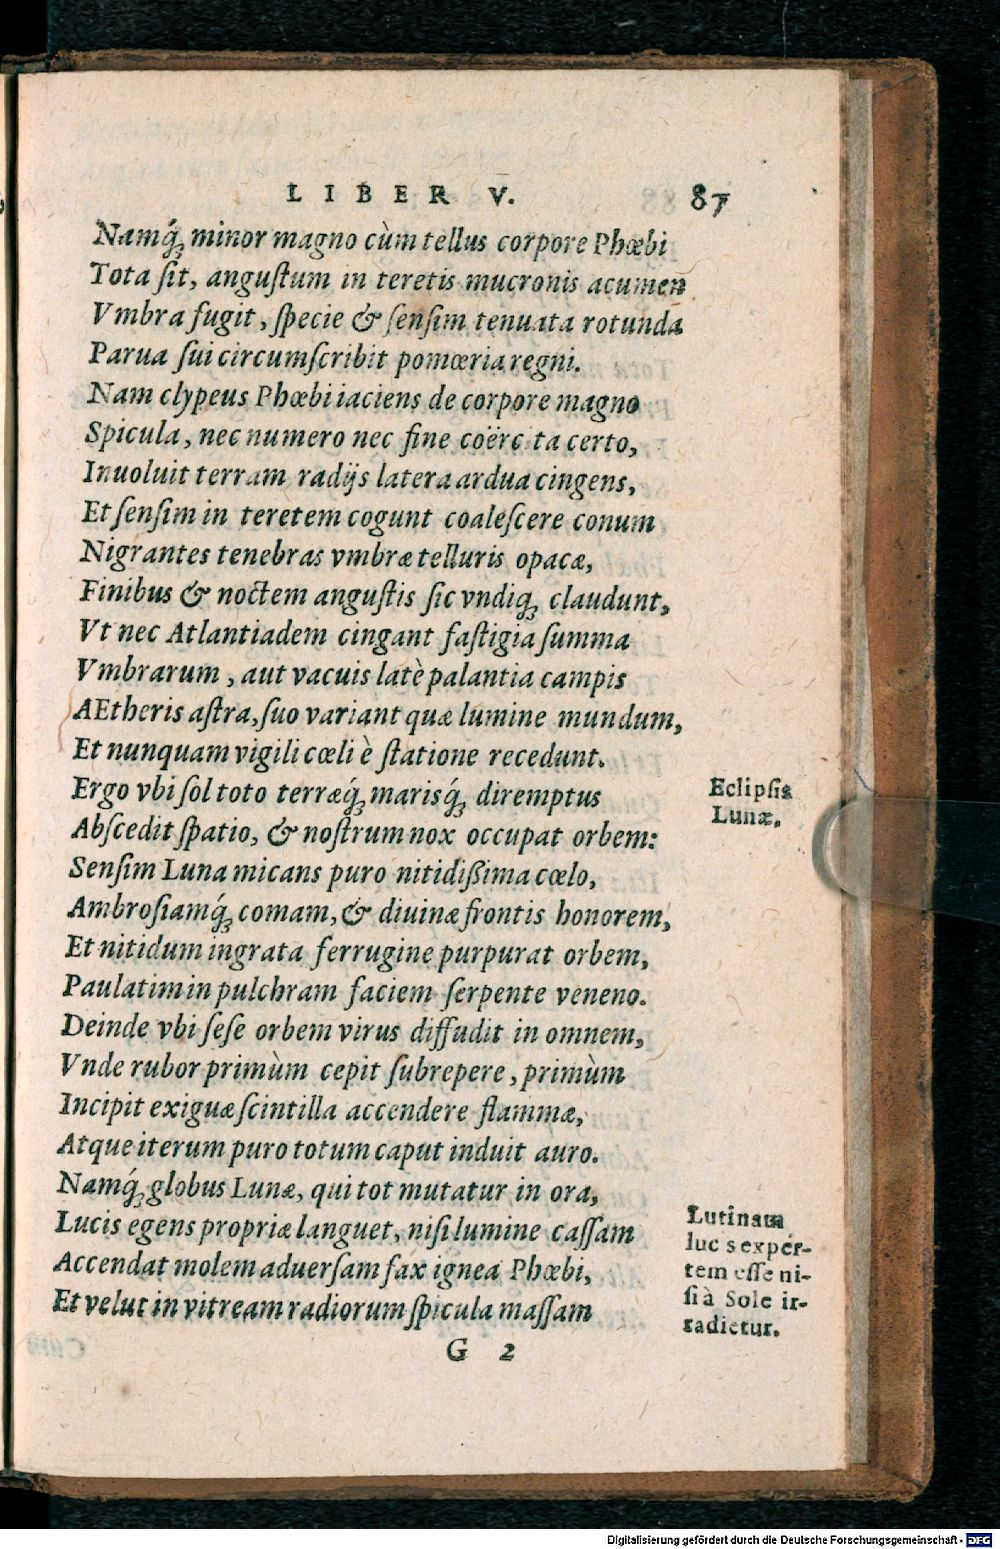 LIBER V. 87
Namq́; minor magno cùm tellus corpore Phœbi
Tota sit, angustum in teretis mucronis acumen
Vmbra fugit, specie & sensim tenuata rotunda
Parua sui circumscribit pomœria regni.
Nam clypeus Phœbi iaciens de corpore magno
Spicula, nec numero nec fine coërc ta certo,
Inuoluit terram radijs latera ardua cingens,
Et sensim in teretem cogunt coalescere conum
Nigrantes tenebras vmbræ telluris opacæ,
Finibus & noctem angustis sic vndiq; claudunt,
Vt nec Atlantiadem cingant fastigia summa
Vmbrarum, aut vacuis latè palantia campis
AEtheris astra, suo variant quæ lumine mundum,
Et nunquam vigili cœli è statione recedunt.
Ergo vbi sol toto terræq́; marisq́; diremptus
Abscedit spatio, & nostrum nox occupat orbem:
Sensim Luna micans puro nitidißima cœlo,
Ambrosiamq́; comam, & diuinæ frontis honorem,
Et nitidum ingrata ferrugine purpurat orbem,
Paulatim in pulchram faciem serpente veneno.
Deinde vbi sese orbem virus diffudit in omnem,
Vnde rubor primùm cepit subrepere, primùm
Incipit exiguæ scintilla accendere flammæ,
Atque iterum puro totum caput induit auro.
Namq́; globus Lunæ, qui tot mutatur in ora,
Lucis egens propriæ languet, nisi lumine cassam
Accendat molem aduersam fax ignea Phœbi,
Et velut in vitream radiorum spicula massam
G 2
Eclipsis
Lunæ.
Lutinam
luc s exper-
tem esse ni-
si à Sole ir-
radietur.
Digitalisierung gefördert durch die Deutsche Forschungsgemeinschaft - DFG